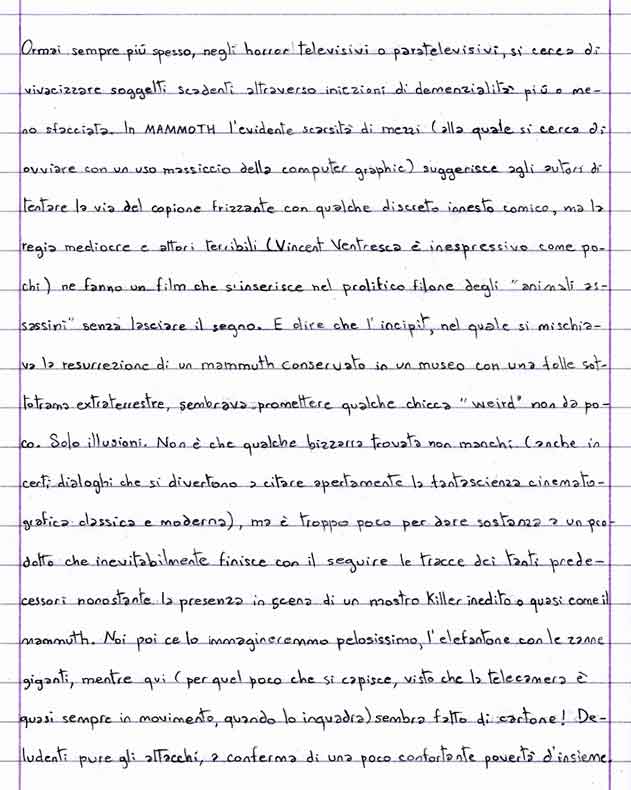 Ormai sempre più spesso, negli horror televisivi o paratelevisivi, si cerca di
vivacizzare soggetti scadenti attraverso iniezioni di demenzialità più o me-
no sfacciata. In MAMMOTH l'evidente scarsità di mezzi (alla quale si cerca di
ovviare con un uso massiccio della computer graphic) suggerisce agli autori di
tentare la via del copione frizzante con qualche discreto innesto comico, ma la
regia mediocre e attori terribili (Vincent Ventresca è inespressivo come po-
chi) ne fanno un film che s'inserisce nel prolifico filone degli "animali as-
sassini" senza lasciare il segno. E dire che l'incipit, nel quale si mischia-
va la resurrezione di un mammuth conservato in un museo con una folle sot-
totrama extraterrestre, sembrava promettere qualche chicca "weird" non da po-
co. Solo illusioni. Non è che qualche bizzarra trovata non manchi (anche in
certi dialoghi che si divertono a citare apertamente la fantascienza cinemato-
grafica classica e moderna), ma è troppo poco per dare sostanza a un pro-
dotto che inevitabilmente finisce con il seguire le tracce dei tanti prede-
cessori nonostante la presenza in scena di un mostro killer inedito o quasi come il
mammuth. Noi poi ce lo immagineremmo pelosissimo, l'elefantone con le zanne
giganti, mentre qui (per quel poco che si capisce, visto che la telecamera è
quasi sempre in movimento, quando lo inquadra) sembra fatto di cartone! De-
ludenti pure gli attacchi, a conferma di una poco confortante povertà d'insieme.